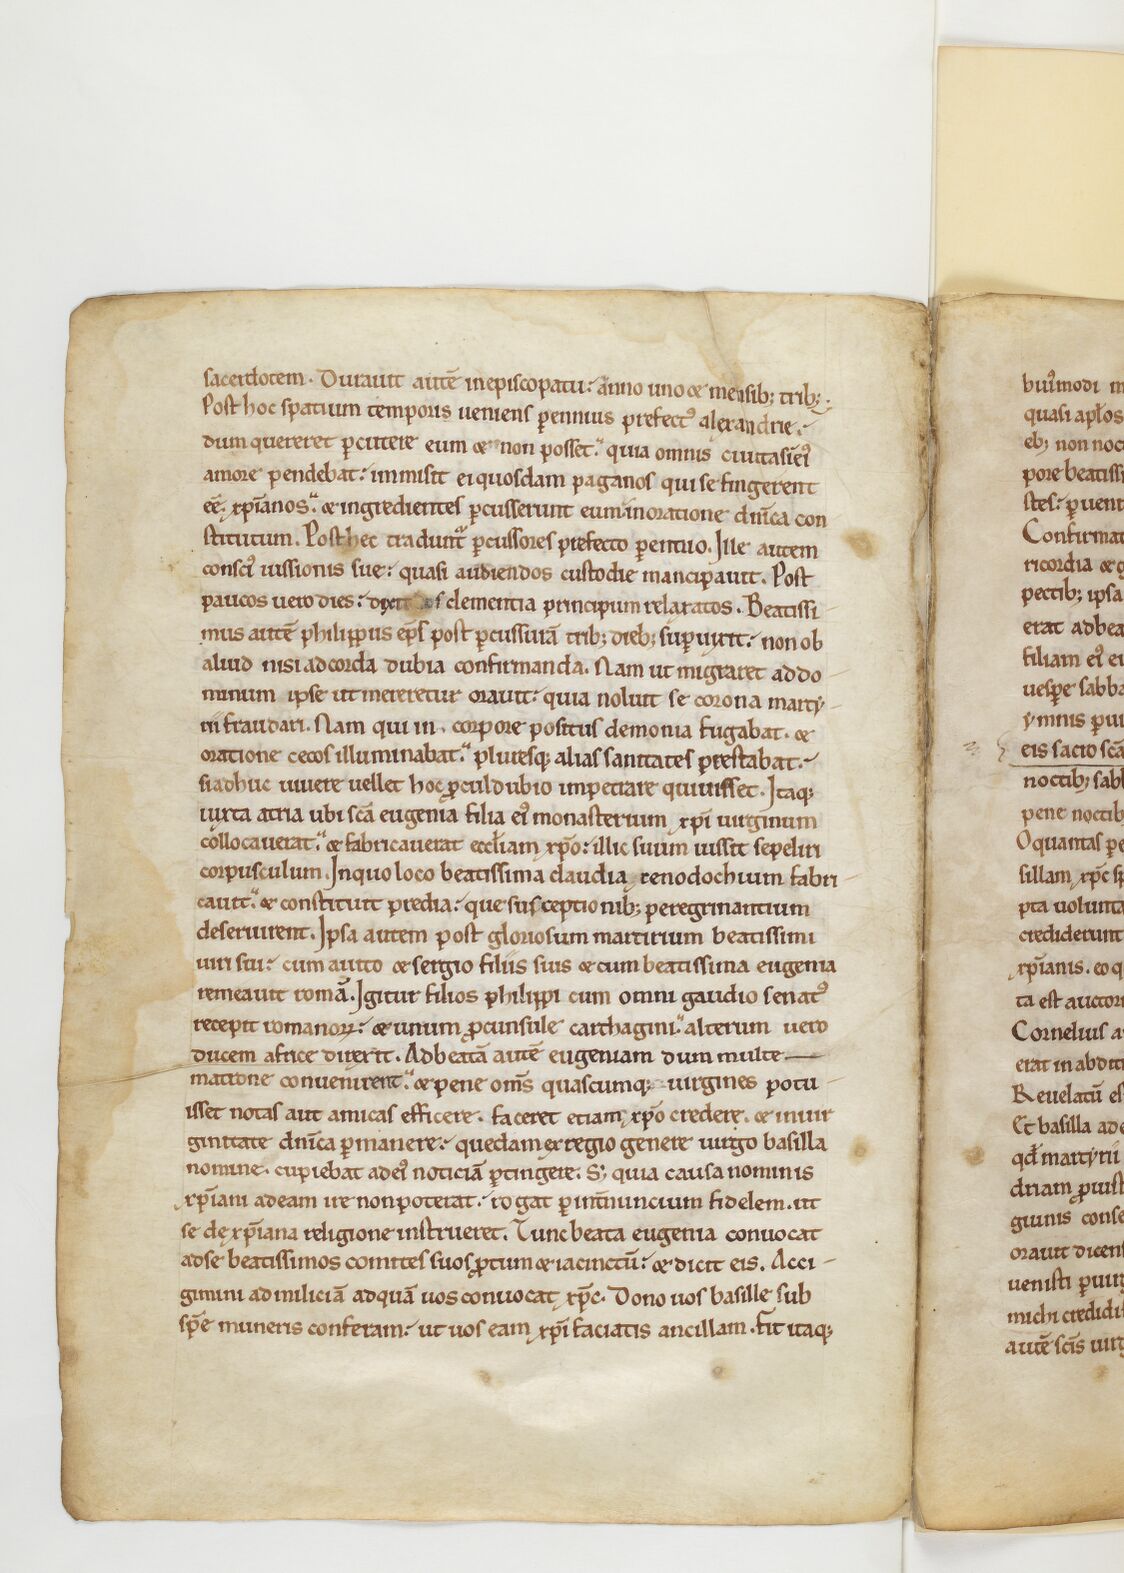 sacerdotem. Durauit autē in episcopatu: anno uno & mensib; trib;.
Post hoc spatium temporis ueniens ꝑennius prefectꝰ alexandrie.
dum quereret ꝑcutere eum & non posset: quia omnis ciuitas in eiꝰ
amore pendebat: immisit ei quosdam paganos qui se fingerent
eē xp̄ianos: & ingredientes ꝑcusserunt eum in oratione dn̄ica con
stitutum. Post hec tradunt̄ ꝑcussores prefecto ꝑennio. Ille autem
consciꝰ iussionis sue: quasi audiendos custodie mancipauit. Post
paucos uero dies: dixit clementia principum relaxatos. Beatissi
mus autē philippus ep̄s post ꝑcussurā trib; dieb; suꝑuixit: non ob
aliud nisi ad corda dubia confirmanda. Nam ut migraret ad do
minum ipse ut mereretur orauit: quia noluit se corona marty
rii fraudari. Nam qui in corpore positus demonia fugabat. &
oratione cecos illuminabat: pluresq; alias sanitates prestabat.
si adhuc uiuere uellet hoc ꝓculdubio impetrare quiuisset. Itaq;
iuxta atria ubi scā eugenia filia eiꝰ monasterium xp̄i uirginum
collocauerat: & fabricauerat eccłiam xp̄o: illic suum iussit sepeliri
corpusculum. In quo loco beatissima claudia xenodochium fabri
cauit: & constituit predia: que susceptionib; peregrinantium
deseruirent. Ipsa autem post gloriosum martirium beatissimi
uiri sui: cum auito & sergio filiis suis & cum beatissima eugenia
remeauit romā. Igitur filios philippi cum omni gaudio senatꝰ
recepit romanoꝝ: & unum ꝓcunsule carthagini: alterum uero
ducem africe direxit. Ad beatā autē eugeniam dum multe
matrone conuenirent: & pene om̄s quascumq; uirgines potu
isset notas aut amicas efficere. faceret etiam xp̄o credere. & in uir
ginitate dn̄ica ꝑmanere: quedam ex regio genere uirgo basilla
nomine. cupiebat ad eiꝰ noticiā ꝑtingere. S; quia causa nominis
xp̄iani ad eam ire non poterat: rogat ꝑ int̄nuncium fidelem. ut
se de xp̄iana religione instrueret. Tunc beata eugenia conuocat
ad se beatissimos comites suos ꝓtum & iacinctū: & dicit eis. Acci
gimini ad miliciā ad quā uos conuocat xp̄c. Dono uos basille sub
sp̄e muneris conferam: ut uos eam xp̄i faciatis ancillam. Fit itaq;
quasi apłos
eb; non noc
pore beatissi
stes: ꝑuent
Confirmat
ricordia & g
pectib; ipsa
erat ad bea
filiam eiꝰ e
uespe sabba
ymnis ꝑui
eis sacro scā
noctib; sabb
pene noctib
O quantas pe
sillam xp̄c sp
pta uolunta
crediderunt
xp̄ianis. eo q
ta est auctori
Cornelius a
erat in abditi
Reuelatū es
Et basilla ade
qd̄ martyrii
driam ꝓuist
giunis conse
orauit dicens
uenisti ꝑ uirg
michi credidi
autē scīs uirg